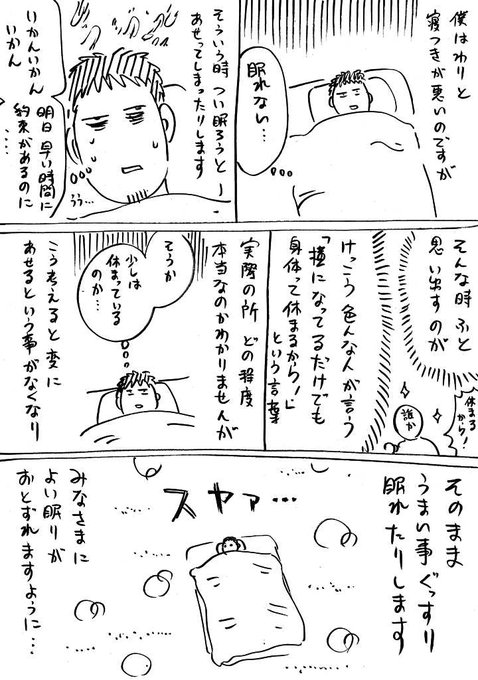 僕はわりと
寝つきが悪いのですが
眠れない…
そういう時つい眠ろうと
あせってしまったりします
いかんいかん
いかん
明日早い時間に
約束があるのに
うう…
そんな時ふと
思い出すのが
休まる
から!
誰か
けっこう色んな人が言う
「横になってるだけでも
身体って休まるから!」
という言葉
実際の所どの程度
本当なのかわかりませんが
そうか
少しは
休まっている
のか…
こう考えると変に
あせるという事がなくなり
そのまま
うまい事ぐっすり
眠れたりします
スヤァ…
みなさまに
よい眠りが
おとずれますように…